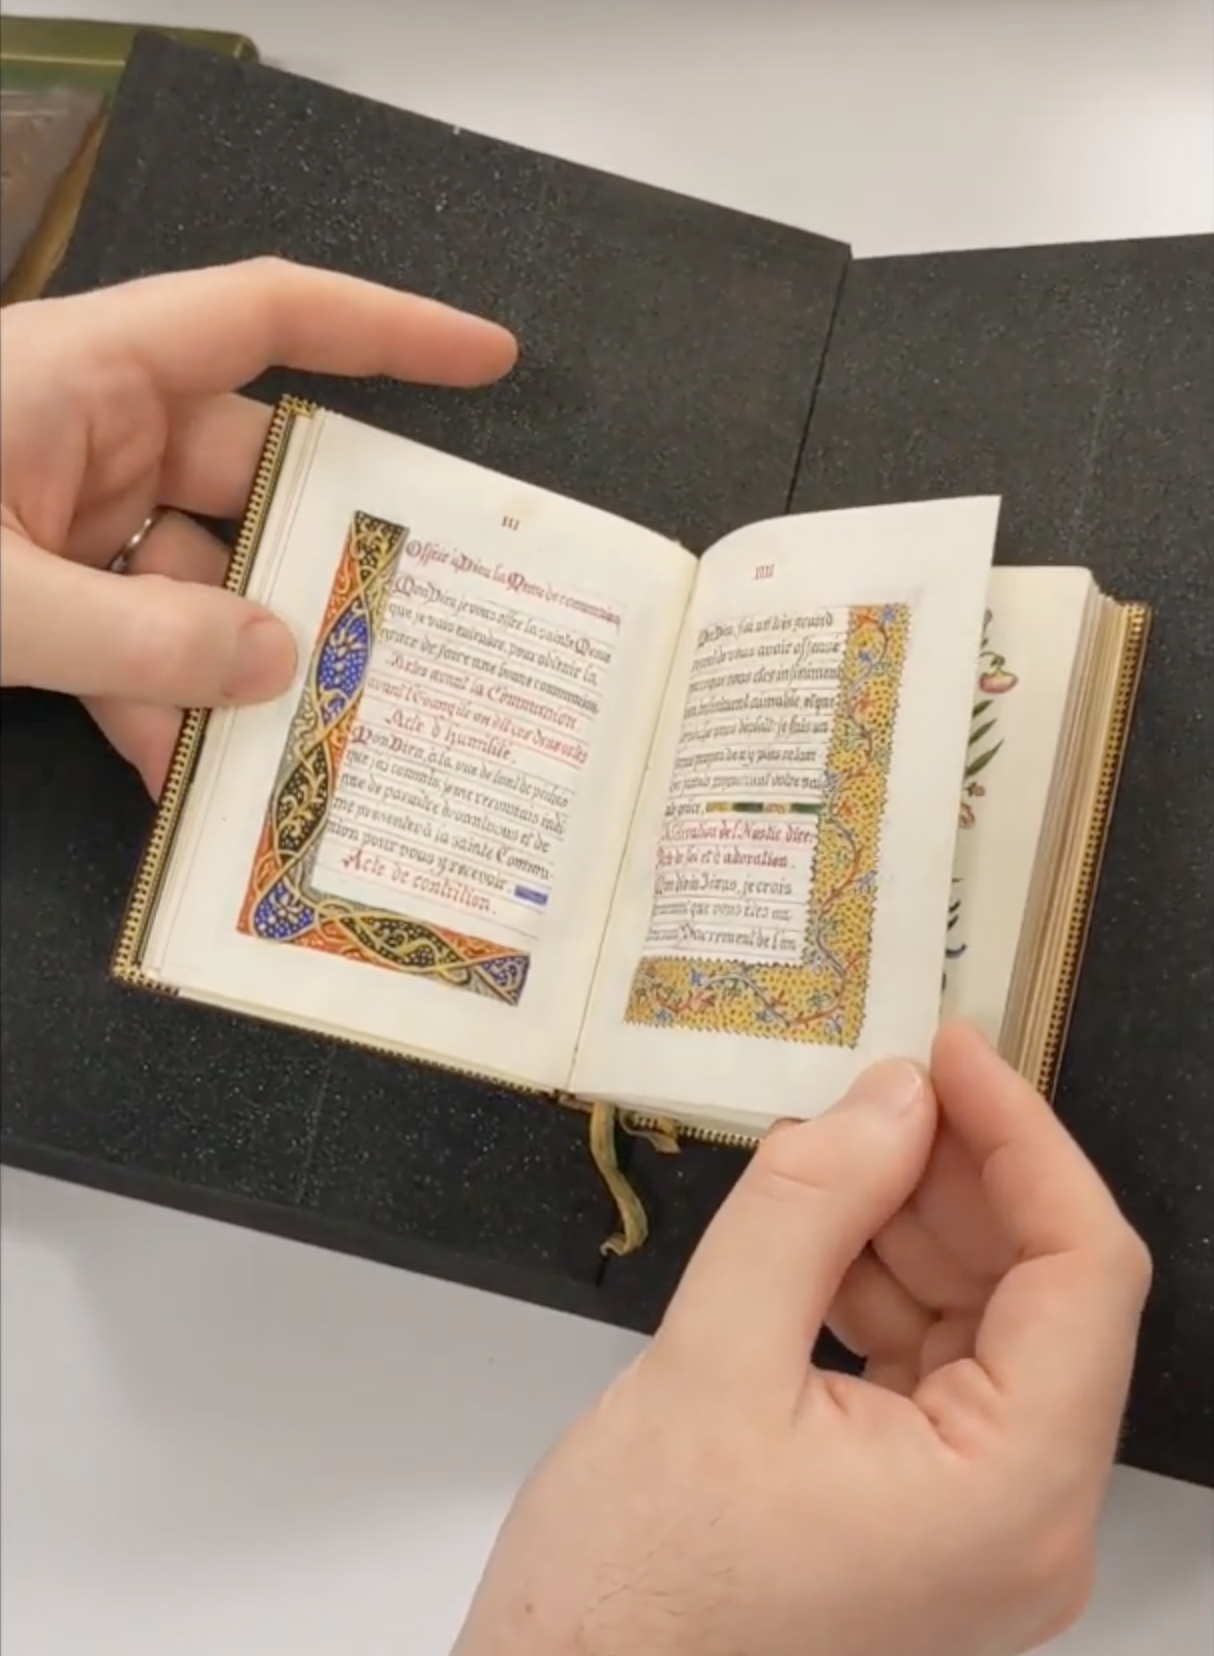 III
Offrir à Dieu la Messe de communion
Mon Dieu je vous offre la sainte Messe
que je vais entendre, pour obtenir la
grace de faire une bonne communion.
Actes avant la Communion.
avant l'Evangile on dit ces deux actes
Acte d'humilité.
Mon Dieu, à la vue de tant de péchés
que j'ai commis, je me reconnais indi-
gne de paraître devant vous et de
me présenter à la sainte Commu-
nion pour vous y recevoir.
Acte de contrition.
IIII
Mon Dieu, j'ai un très grand
de vous avoir offensé
parceque vous êtes infiniment
bon, infiniment aimable, et que
le péché vous déplait: je fais un
ferme propos de n'y plus
votre
grâce.
Elévation de l'Hostie dire:
Acte de foi et d'adoration.
Mon divin Jésus, je crois
que vous êtes au
Sacrement de l'au